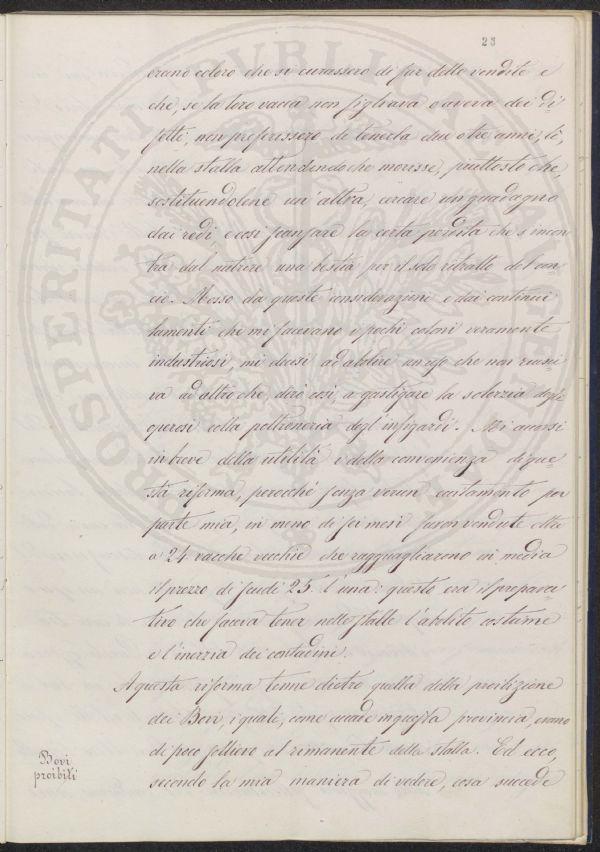 23
erano coloro che si curassero di far delle vendite e
che, se la loro vacca non figliava o aveva dei di-
fetti, non preferissero di tenerla due o tre anni, lì,
nella stalla attendendo che morisse, piuttosto che,
sostituendolene un'altra, cercare un guadagno
dai redi e così scansare la certa perdita che s'incon-
tra dal nutrire una bestia per il solo ritratto del con-
cio. Mosso da queste considerazioni e dai continui
lamenti che mi facevano i pochi coloni veramente
industriosi, mi decisi ad abolire un uso che non riusci-
va ad altro che, dirò così, a gastigare la solerzia degli
operosi colla poltroneria degl'infigardi. Mi accorsi
in breve della utilità e della convenienza di que-
sta riforma, perocché senza verun eccitamento per
parte mia, in meno di sei mesi furon vendute oltre
a 24 vacche vecchie che ragguagliarono in media
il prezzo di scudi 25 l'una: questo era il prepara-
tivo che faceva tener nelle stalle l'abolito costume
e l'inerzia dei contadini.
A questa riforma tenne dietro quella della proibizione
dei Bovi, i quali, come accade in questa provincia, erano
di poco sollievo al rimanente della stalla. Ed ecco,
secondo la mia maniera di vedere, cosa succede
Bovi
proibiti
PROSPERITATI PVBLICAE AVGENDAE